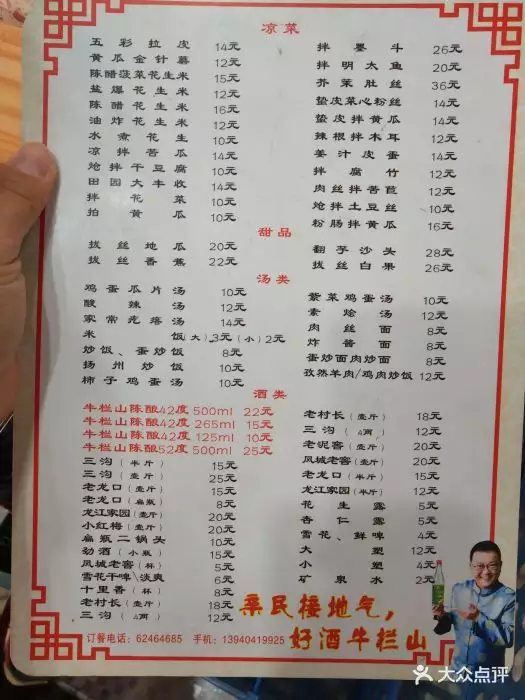 凉菜
五彩拉皮 14元
黄瓜金针蘑 12元
陈醋菠菜花生米 15元
盐爆花生米 12元
陈醋花生米 16元
油炸花生米 12元
水煮花生 10元
凉拌苦瓜 14元
炝拌干豆腐 10元
田园大丰收 14元
拌花菜 10元
拍黄瓜 10元
拌墨斗 26元
拌明太鱼 20元
芥茉肚丝 36元
蛰皮菜心粉丝 14元
蛰皮拌黄瓜 14元
辣根拌木耳 12元
姜汁皮蛋 14元
拌腐竹 12元
肉丝拌苦苣 12元
炝拌土豆丝 10元
粉肠拌黄瓜 16元
甜品
拔丝地瓜 20元
拔丝香蕉 22元
翻手沙头 28元
拔丝白果 26元
汤类
鸡蛋瓜片汤 10元
酸辣汤 12元
家常疙瘩汤 14元
米饭(大)3元(小)2元
炒饭、蛋炒饭 8元
扬州炒饭 10元
柿子鸡蛋汤 10元
紫菜鸡蛋汤 10元
素烩汤 12元
肉丝面 8元
炸酱面 8元
蛋炒面肉炒面 8元
孜然羊肉/鸡肉炒饭 12元
酒类
牛栏山陈酿42度 500ml 22元
牛栏山陈酿42度 265ml 15元
牛栏山陈酿42度 125ml 10元
牛栏山陈酿52度 500ml 25元
三沟(半斤) 15元
三沟(壶斤) 25元
老龙口(壶斤) 15元
老龙口(扁瓶) 8元
龙江家园(壶斤) 20元
小红梅(壶斤) 20元
扁瓶二锅头 10元
劲酒(小瓶) 15元
凤城老窖(杯) 5元
雪花干啤\淡爽 6元
十里香(杯) 8元
老村长(壶斤) 18元
三沟(4两) 12元
老村长(壶斤) 18元
三沟(4两) 12元
老泥窖(壶斤) 20元
凤城老窖(壶斤) 20元
老龙口(半斤) 15元
龙江家园(半斤) 12元
花生露 5元
杏仁露 5元
雪花、鲜啤 4元
大塑 12元
小塑 4元
矿泉水 2元
亲民接地气,
好酒牛栏山
订餐电话:62464685 手机:13940419925
大众点评